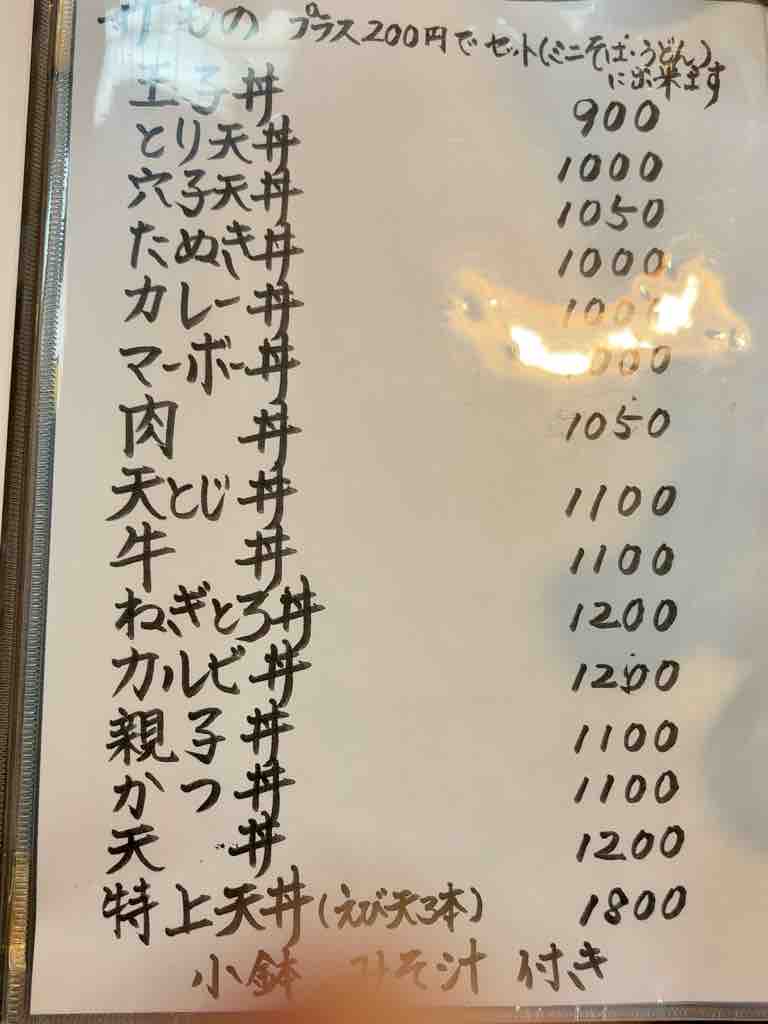 丼もの プラス200円でセット(ミニそば・うどん)
に出来ます
玉子丼 900
とり天丼 1000
穴子天丼 1050
たぬき丼 1000
カレー丼 1000
マーボー丼 1000
肉丼 1050
天とじ丼 1100
牛丼 1100
ねぎとろ丼 1200
カルビ丼 1200
親子丼 1100
かつ丼 1100
天丼 1200
特上天丼(えび天3本) 1800
小鉢 みそ汁 付き